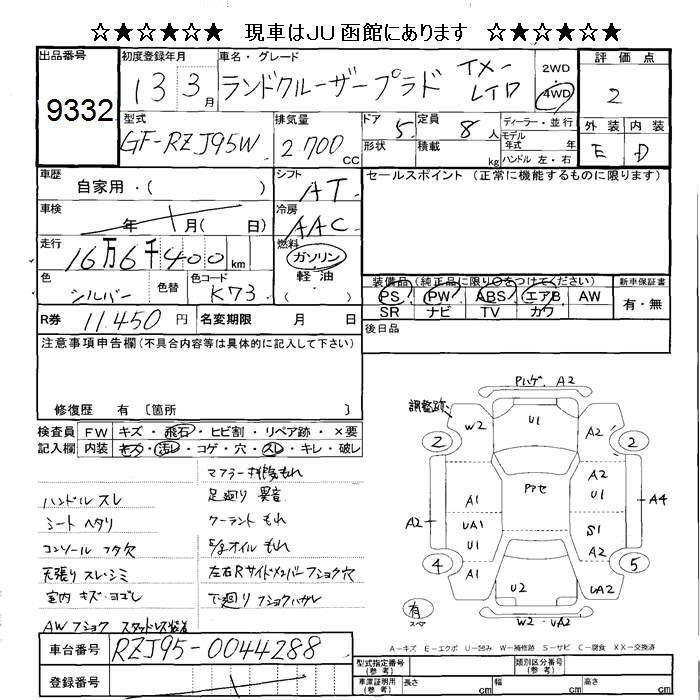 ☆★☆★☆ 現車はJU函館にあります ☆★☆★☆
出品番号
9332
初度登録年月
13 3月
車名・グレード
ランドクルーザープラド
2WD
4WD
評価点
2
外装 内装
E D
型式
GF-RZJ95W
排気量
2700CC
ドア
5
定員
8人
形状
積載
kg
ディーラー・並行
モデル
年式 年
ハンドル 左・右
車歴
自家用・( )
シフト
AT
セールスポイント (正常に機能するものに限ります)
車検
年 月( 日)
冷房
AAC
走行
16万6千400km
燃料
ガソリン
軽油
( )
色
シルバー
色替
色コード
K73
装備品(純正品に限り○をつけてください)
新車保証書
PS PW ABS エアB AW
SR ナビ TV カワ
有・無
R券 11,450円
名変期限 月 日
後日品
注意事項申告欄(不具合内容等は具体的に記入して下さい)
修復歴 有 〔箇所 〕
検査員
記入欄
FW キズ・飛石・ヒビ割・リペア跡・×要
内装 キズ・汚レ・コゲ・穴・スレ・キレ・破レ
マフラー排気もれ
ハンドルスレ
足廻り異音
シートヘタリ
クーラントもれ
コンソールフタ欠
オイルもれ
天張りスレ・シミ
左右Rサイドメンバーフショク穴
室内キズ・ヨゴレ
下廻りフショクハガレ
AWフショク スタッドレス装着
調整跡
Pハゲ、A2
W2
U1
A2
2
2
A1
A2
U1
A4
A2
UA1
U1
S1
A2
4
A1
5
U2
UA2
有
スペア
W2・UA2
A-キズ E-エクボ U-凹み W-補修跡 S-サビ C-腐食 XX-交換済
車台番号
RZJ95-0044288
登録番号
型式指定番号
(参考)
類別区分番号
(参考)
車庫証明用
(参考)
長さ cm
幅 cm
高さ cm